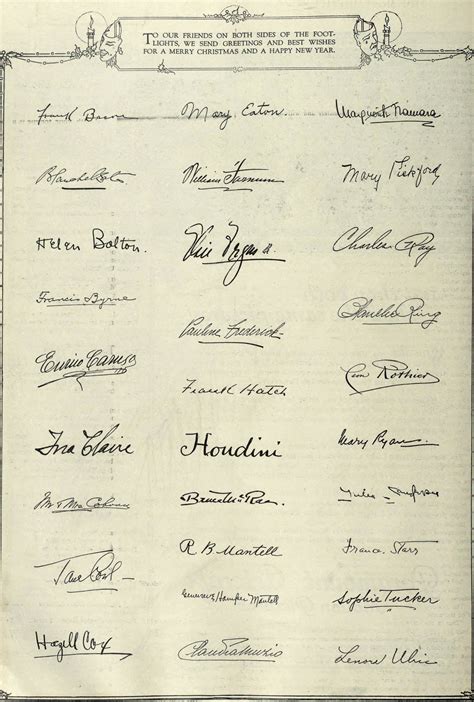 TO OUR FRIENDS ON BOTH SIDES OF THE FOOT-
LIGHTS, WE SEND GREETINGS AND BEST WISHES
FOR A MERRY CHRISTMAS AND A HAPPY NEW YEAR.
Frank Bacon
Blanche Bates
Helen Bolton.
Francis Byrne
Enrico Caruso
Ina Claire
Mr & Mrs Coburn
Jane Cowl
Hazzell Cox
Mary Eaton.
William Farnum
Pauline Frederick
Frank Hatch
Houdini
Bruce McRae
R B Mantell
Genevieve Hamper Mantell
Claudia Muzio
Marguerite Namara
Mary Pickford
Charles Ray
Blanche Ring
Léon Rothier
Mary Ryan.
Frances Starr
Sophie Tucker
Lenore Ulric